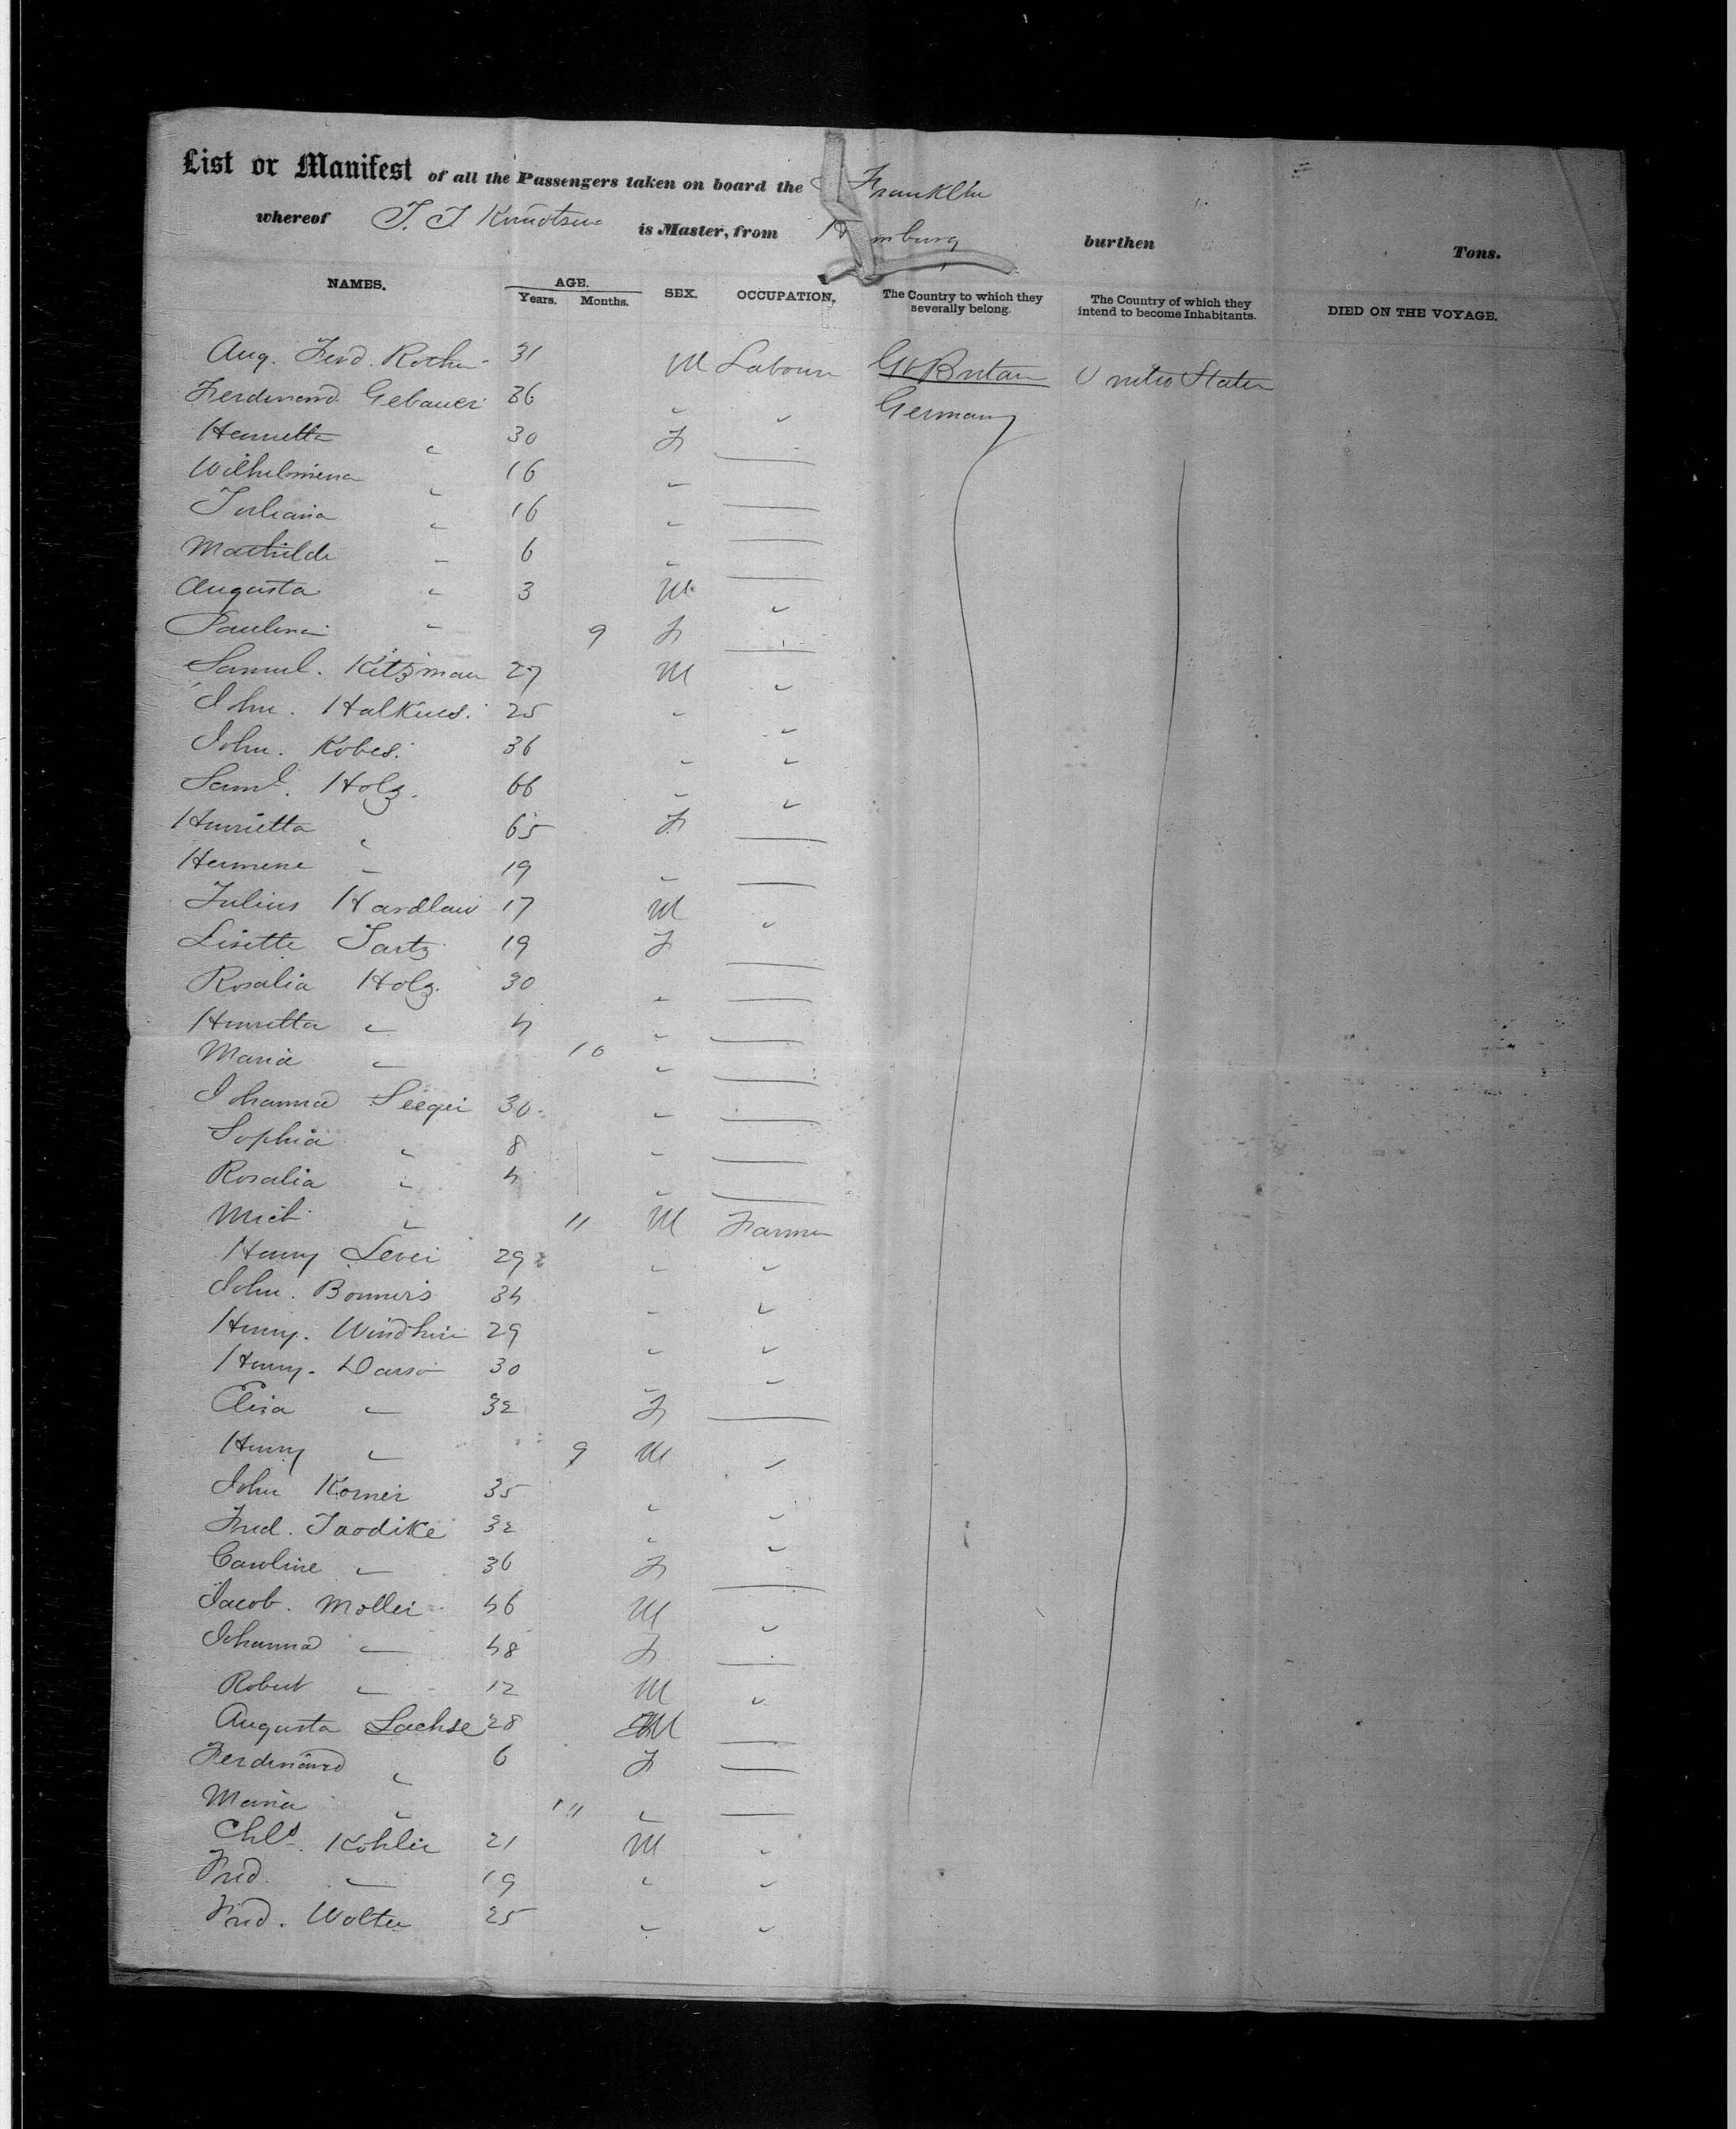 List or Manifest of all the Passengers taken on board the Franklin
whereof J. J. Knudtsen is Master, from Hamburg burthen Tons.
NAMES. AGE. Years. Months. SEX. OCCUPATION. The Country to which they severally belong. The Country of which they intend to become Inhabitants. DIED ON THE VOYAGE.
Aug. Ferd. Rother 31 M Labourer Gt Britain United States
Ferdinand Gebauer 36 " " Germany
Henrietta " 30 F —
Wilhelmina " 16 " —
Juliana " 16 " —
Mathilde " 6 " —
Augusta " 3 M "
Paulina " 9 F —
Samuel. Kitzman 27 M "
John. 25 " "
John. Kobes. 36 " "
Saml. Holz. 66 " "
Henrietta " 65 F —
Hermene " 19 " —
Julius 17 M "
Lisette 19 F —
Rosalia Holz. 30 " —
Henrietta " 4 " —
Maria " 10 " —
Johanna Seeger 30 " —
Sophia " 8 " —
Rosalia " 4 " —
Mich " 11 M Farmer
Henry 29 " "
John. 34 " "
Henry. 29 " "
Henry. 30 " "
Eliza " 32 F —
Henry " 9 M "
John Korner 35 " "
Fred. 32 " "
Caroline " 36 F —
Jacob. Moller 46 M "
Johanna " 48 F —
Robert " 12 M "
Augusta Sachse 28 M —
Ferdinand " 6 F —
Maria " 11 " —
Chls. Kohler 21 M "
Fred. " 19 " "
Fred. Wolter 25 " "